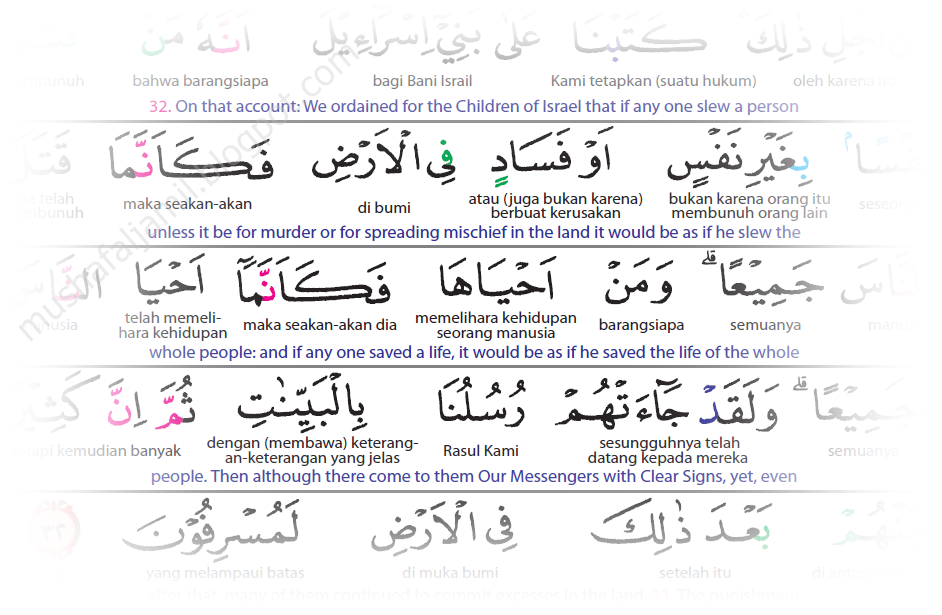 اَجْلِ ذٰلِكَ كَتَبْنَا عَلٰى بَنِيْٓ اِسْرَاۤءِيْلَ اَنَّهٗ مَنْ
bahwa barangsiapa bagi Bani Israil Kami tetapkan (suatu hukum) oleh karena itu
32. On that account: We ordained for the Children of Israel that if any one slew a person
بِغَيْرِ نَفْسٍ اَوْ فَسَادٍ فِى الْاَرْضِ فَكَاَنَّمَا
maka seakan-akan di bumi atau (juga bukan karena) berbuat kerusakan bukan karena orang itu membunuh orang lain
unless it be for murder or for spreading mischief in the land it would be as if he slew the
جَمِيْعًاۗ وَمَنْ اَحْيَاهَا فَكَاَنَّمَآ اَحْيَا النَّاسَ
telah memeli-hara kehidupan maka seakan-akan dia memelihara kehidupan seorang manusia barangsiapa semuanya
whole people: and if any one saved a life, it would be as if he saved the life of the whole
جَمِيْعًاۗ وَلَقَدْ جَاۤءَتْهُمْ رُسُلُنَا بِالْبَيِّنٰتِ ثُمَّ اِنَّ
kemudian banyak dengan (membawa) keterang-an-keterangan yang jelas Rasul Kami sesungguhnya telah datang kepada mereka semuanya
people. Then although there come to them Our Messengers with Clear Signs, yet, even
بَعْدَ ذٰلِكَ فِى الْاَرْضِ لَمُسْرِفُوْنَ ٣٢
yang melampaui batas di muka bumi setelah itu
after that, many of them continued to commit excesses in the land. 33. The punishment
mushafaljamil.blogpot.com